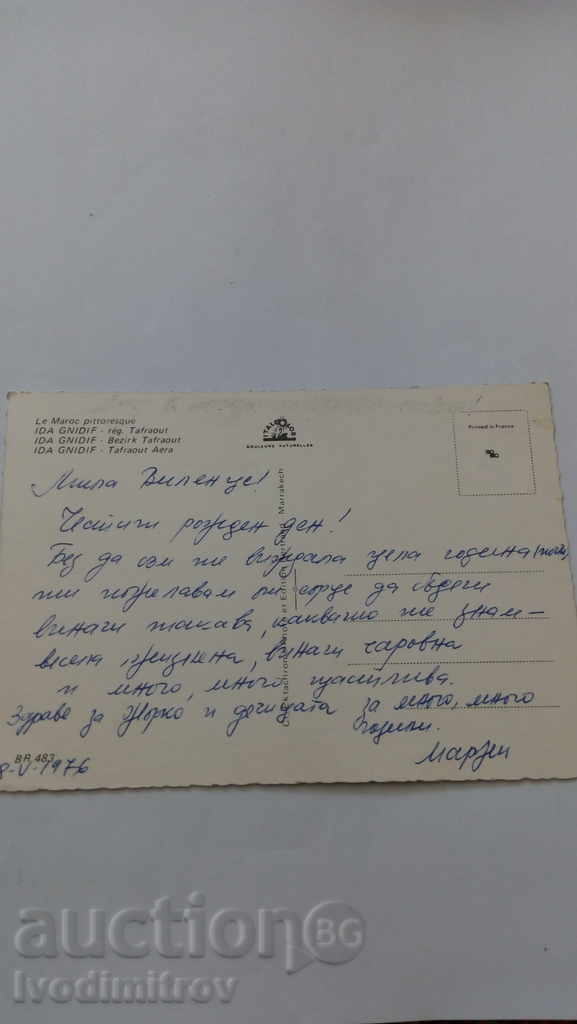 Le Maroc pittoresque
IDA GNIDIF - rég. Tafraout
IDA GNIDIF - Bezirk Tafraout
IDA GNIDIF - Tafraout Aera
ITALCOLOR
COULEURS NATURELLES
Printed in France
Marrakech
Мила Виленце!
Честит рожден ден!
Без да съм те виждала цяла година
ти пожелавам от сърце да бъдеш
винаги такава, каквато те знам -
весела, винаги чаровна
и много, много щастлива.
Здраве за Жорко и дечицата за много, много
години.
BR 483
8-V-1976
auctionBG
Ivodimitrov